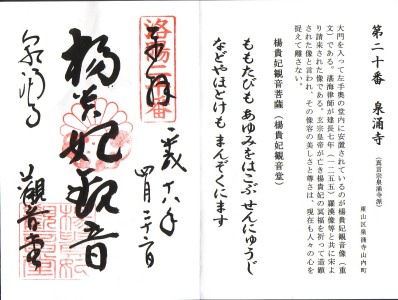 第二十番 泉涌寺
(真言宗泉涌寺派)
東山区泉涌寺山内町
大門を入って左手奥の堂内に安置されているのが楊貴妃観音像(重
文)である。湛海律師が建長七年(一二五五)羅漢像等と共に宋よ
り請来された像である。玄宗皇帝が亡き楊貴妃の冥福を祈って造顕
された像と言われ、その像容の美しさと尊さは、現在も人々の心を
捉えて離さない。
楊貴妃観音菩薩(楊貴妃観音堂)
ももたびも あゆみをはこぶ せんにゅうじ
などやほとけも まんぞくにます
奉拝
平成十八年
四月二十二日
楊貴妃観音
泉涌寺
観音堂